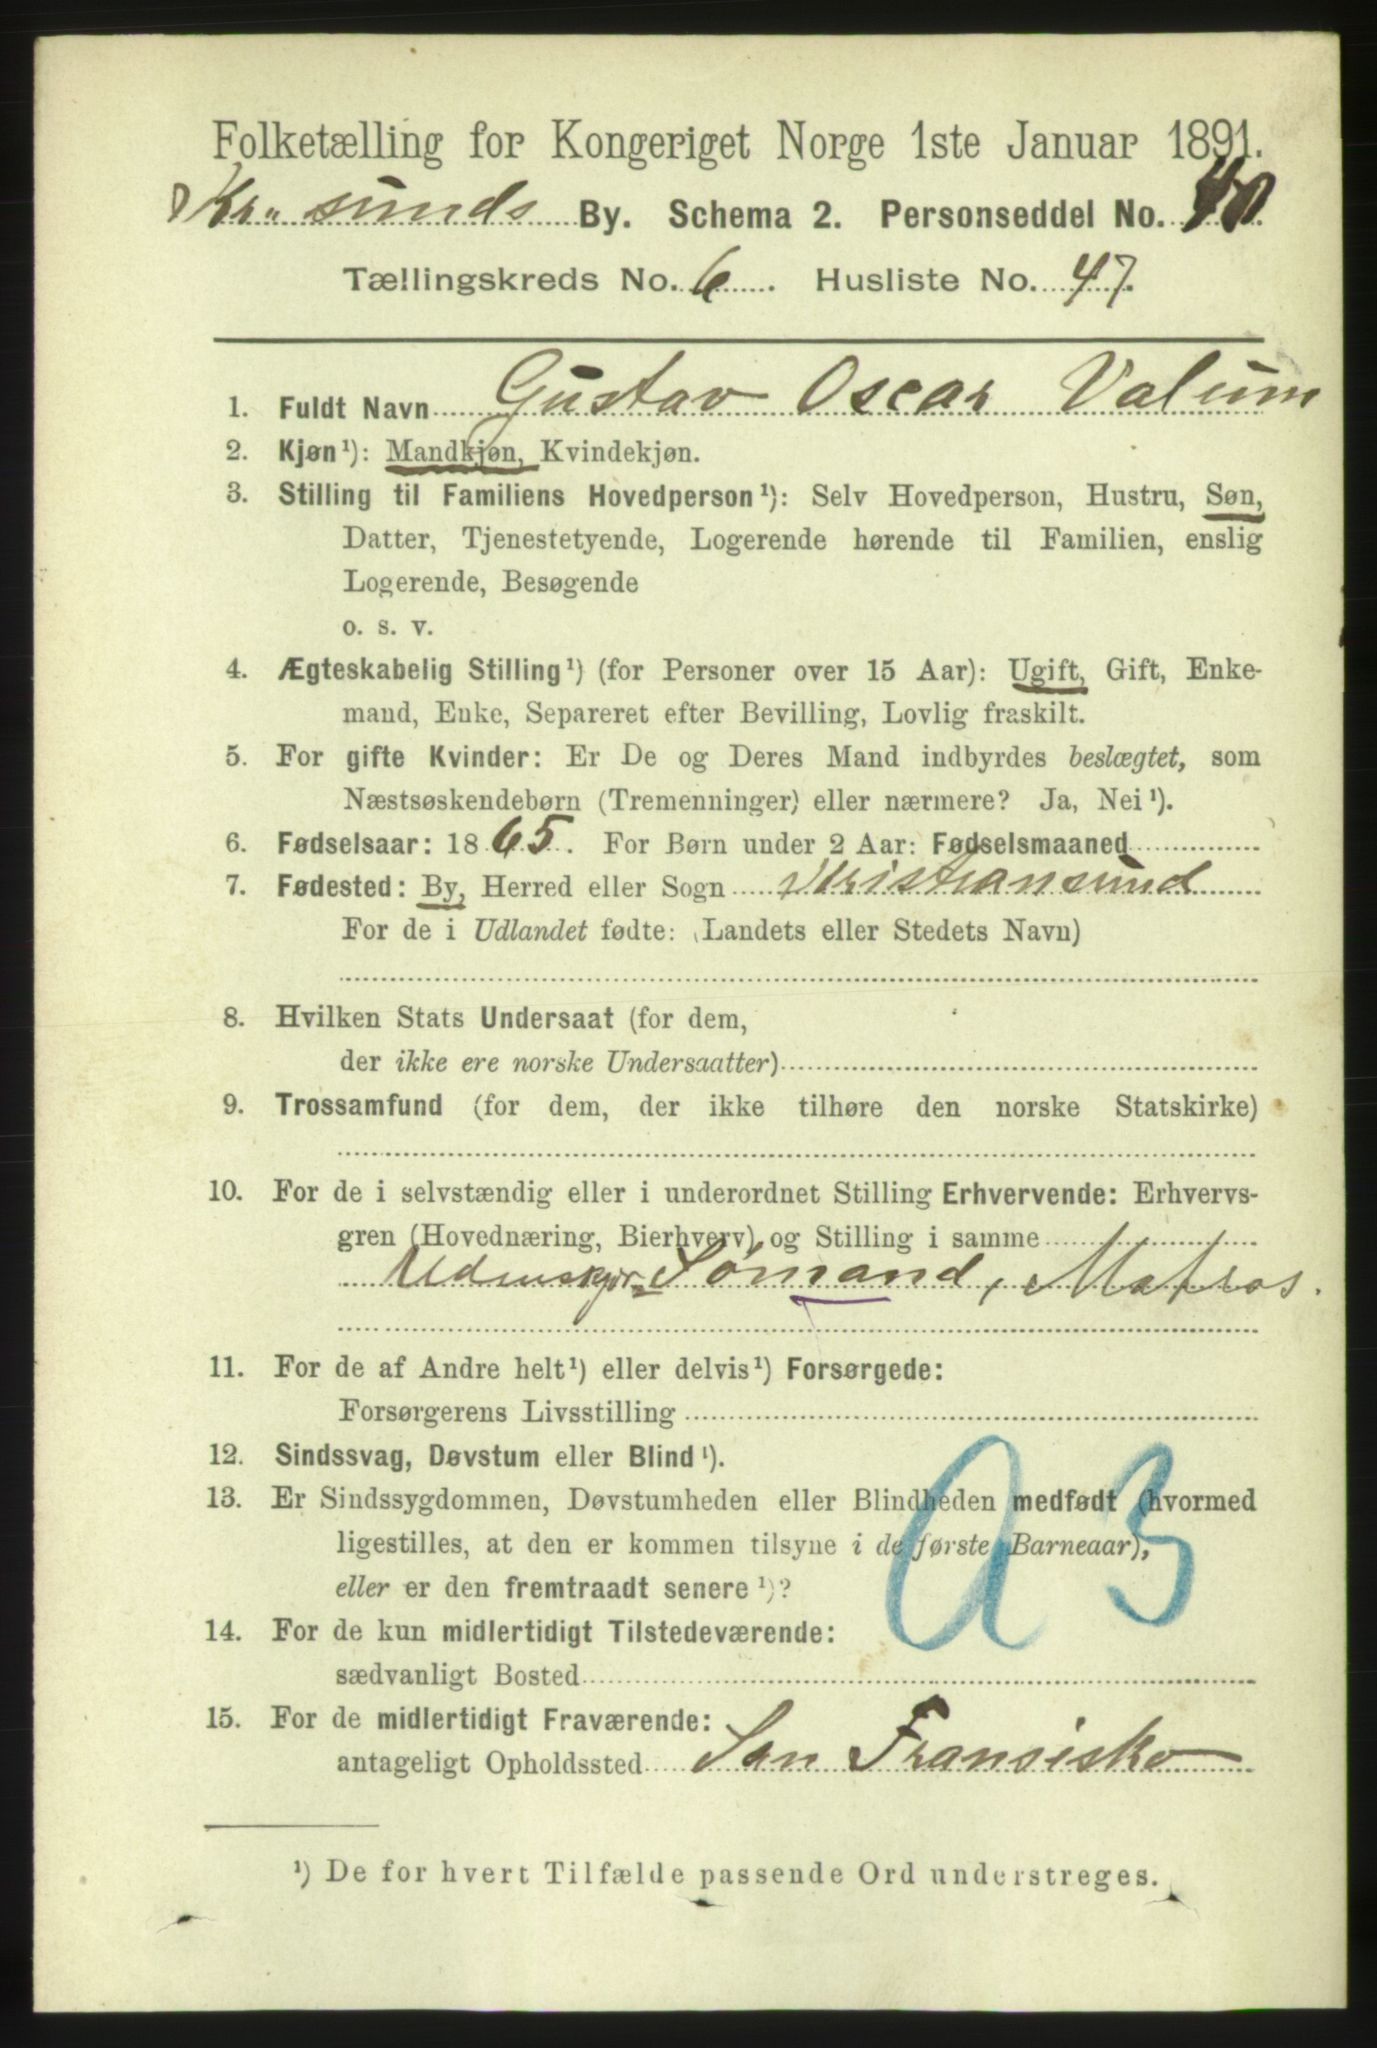 Folketælling for Kongeriget Norge 1ste Januar 1891.
Kr. sunds By. Schema 2. Personseddel No. 40.
Tællingskreds No. 6. Husliste No. 47.
1. Fuldt Navn Gustav Oscar Valum
2. Kjøn¹): Mandkjøn, Kvindekjøn.
3. Stilling til Familiens Hovedperson¹): Selv Hovedperson, Hustru, Søn,
Datter, Tjenestetyende, Logerende hørende til Familien, enslig
Logerende, Besøgende
o. s. v.
4. Ægteskabelig Stilling¹) (for Personer over 15 Aar): Ugift, Gift, Enke-
mand, Enke, Separeret efter Bevilling, Lovlig fraskilt.
5. For gifte Kvinder: Er De og Deres Mand indbyrdes beslægtet, som
Næstsøskendebørn (Tremenninger) eller nærmere? Ja, Nei¹).
6. Fødselsaar: 1865. For Børn under 2 Aar: Fødselsmaaned
7. Fødested: By, Herred eller Sogn Kristiansund
For de i Udlandet fødte: (Landets eller Stedets Navn)
8. Hvilken Stats Undersaat (for dem,
der ikke ere norske Undersaatter)
9. Trossamfund (for dem, der ikke tilhøre den norske Statskirke)
10. For de i selvstændig eller i underordnet Stilling Erhvervende: Erhvervs-
gren (Hovednæring, Bierhverv) og Stilling i samme
Udenskjrs Sømand, Matros.
11. For de af Andre helt¹) eller delvis¹) Forsørgede:
Forsørgerens Livsstilling
12. Sindssvag, Døvstum eller Blind¹).
13. Er Sindssygdommen, Døvstumheden eller Blindheden medfødt (hvormed
ligestilles, at den er kommen tilsyne i de første Barneaar),
eller er den fremtraadt senere¹)?
a 3
14. For de kun midlertidigt Tilstedeværende:
sædvanligt Bosted
15. For de midlertidigt Fraværende:
antageligt Opholdssted San Fransisko
¹) De for hvert Tilfælde passende Ord understreges.